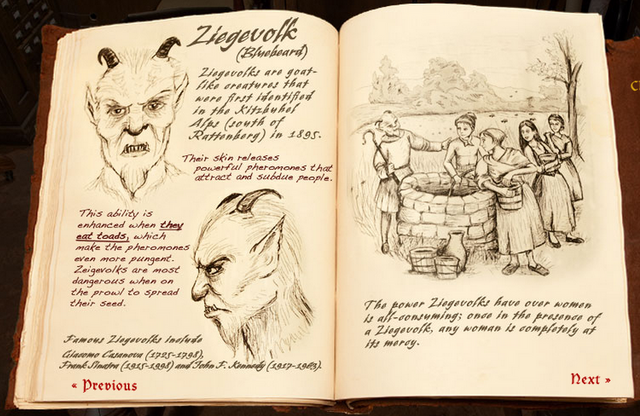 Ziegevolk
(Bluebeard)
Ziegevolks are goat-
like creatures that
were first identified
in the Kitzbuhel
Alps (south of
Rattenberg) in 1895.
Their skin releases
powerful pheromones that
attract and subdue people.
This ability is
enhanced when they
eat toads, which
make the pheromones
even more pungent.
Zeigevolks are most
dangerous when on
the prowl to spread
their seed.
Famous Ziegevolks include
Giacomo Casanova (1725-1798),
Frank Sinatra (1915-1998) and John F. Kennedy (1917-1963).
« Previous
The power Ziegevolks have over women
is all-consuming; once in the presence of
a Ziegevolk, any woman is completely at
its mercy.
Next »